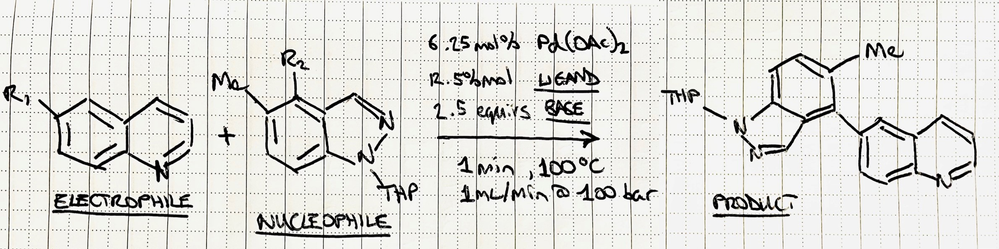 6.25mol% Pd(OAc)2
12.5%mol LIGAND
2.5 equivs BASE
1 min, 100°C
1mL/min @ 100 bar
R1
N
ELECTROPHILE
+
Me
R2
N
N
THP
NUCLEOPHILE
THP
N
N
Me
N
PRODUCT